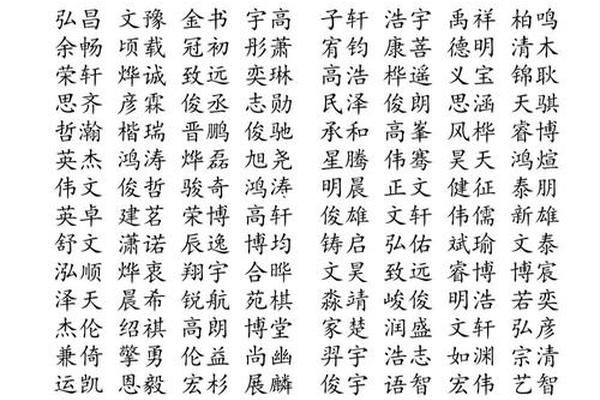 弘昌 文豫 金书 宇高 子轩 浩宇 禹祥 柏鸣
余畅 顷载 冠初 彤萧 宥钧 康善 德明 清木
荣轩 烨诚 致远 奕琳 高浩 桦遥 义宝 锦耿
思齐 彦霖 俊丞 志勋 民泽 俊朗 思涵 天骐
哲瀚 楷瑞 晋鹏 俊驰 承和 高峯 风桦 睿博
英杰 鸿涛 烨磊 旭尧 星腾 伟骞 昊天 鸿煊
伟文 俊哲 骏奇 鸿涛 明晨 正文 健征 泰朋
英卓 建茗 荣博 高轩 俊雄 文轩 伟儒 新雄
舒文 潇诺 辰逸 博均 铸启 弘佑 斌瑜 文泰
泓顺 烨衷 翔宇 合晔 文昊 致远 睿博 博宸
泽天 晨希 锐航 苑棋 淼靖 峻俊 明浩 若奕
杰伦 绍祺 高朗 博堂 家楚 润盛 文轩 弘彦
兼倚 擎勇 伦益 尚幽 羿宇 浩志 如渊 宗清
运凯 恩毅 宏杉 展麟 俊宇 语智 宏伟 艺智